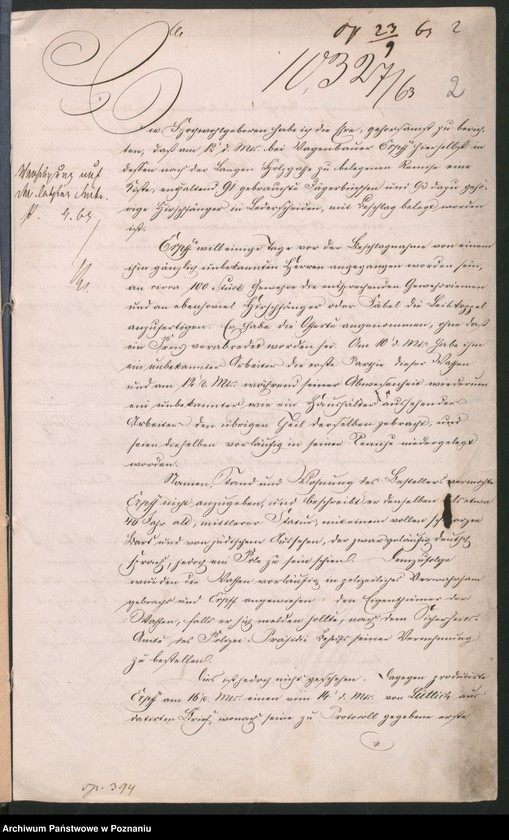 op 23/9 63 2
10,327/63
2
Ew. Hochwohlgeboren habe ich die Ehre, gehorsamst zu berich-
ten, daß am 12 d. Mts. bei Wagenbauer Erpff hierselbst in
dessen nach der Langen Holzgasse zu belegenen Remise eine
Kiste, enthaltend 91 gebrauchte Jägerbüchsen und 93 dazu gehö-
rige Hirschfänger in Lederscheiden, mit Beschlag belegt worden
ist.
Erpff will einige Tage vor der Beschlagnahme von einem
ihm gänzlich unbekannten Herren angegangen worden sein,
an circa 100 Stück Gewehre die entsprechenden Gewehrriemen
und an ebensoviel Hirschfänger oder Säbel die Leibkoppel
anzufertigen. Er habe die Offerte angenommen, ohne daß
ein Preis verabredet worden sei. Am 10 d. Mts. habe ihm
ein unbekannter Arbeiter die erste Parthie dieser Waffen
und am 12 d. Mts. während seiner Abwesenheit wiederum
ein unbekannter, wie ein Haushälter aussehender
Arbeiter den übrigen Theil derselben gebracht, und
seien dieselben vorläufig in seiner Remise niedergelegt
worden.
Namen, Stand und Wohnung des Bestellers vermochte
Erpff nicht anzugeben, und beschreibt er denselben als etwa
40 Jahr alt, mittlerer Statur, mit einem vollen schwarzen
Bart und von jüdischem Aussehen, der zwar geläufig deutsch
sprach, jedoch ein Pole zu sein schien. Demzufolge
wurden die Waffen vorläufig in polizeilichen Verwahrsam
gebracht und Erpff angewiesen: den Eigenthümer der
Waffen, falls er sich melden sollte, nach dem Sicherheits-
Amte des Polizei-Präsidii behufs seiner Vernehmung
zu bestellen.
Dies ist jedoch nicht geschehen. Dagegen produzirte
Erpff am 16 d. Mts. einen vom 14 d. Mts. von Lüttich aus
datirten Brief, wonach seine zu Protokoll gegebene erste
op. 394
Archiwum Państwowe w Poznaniu